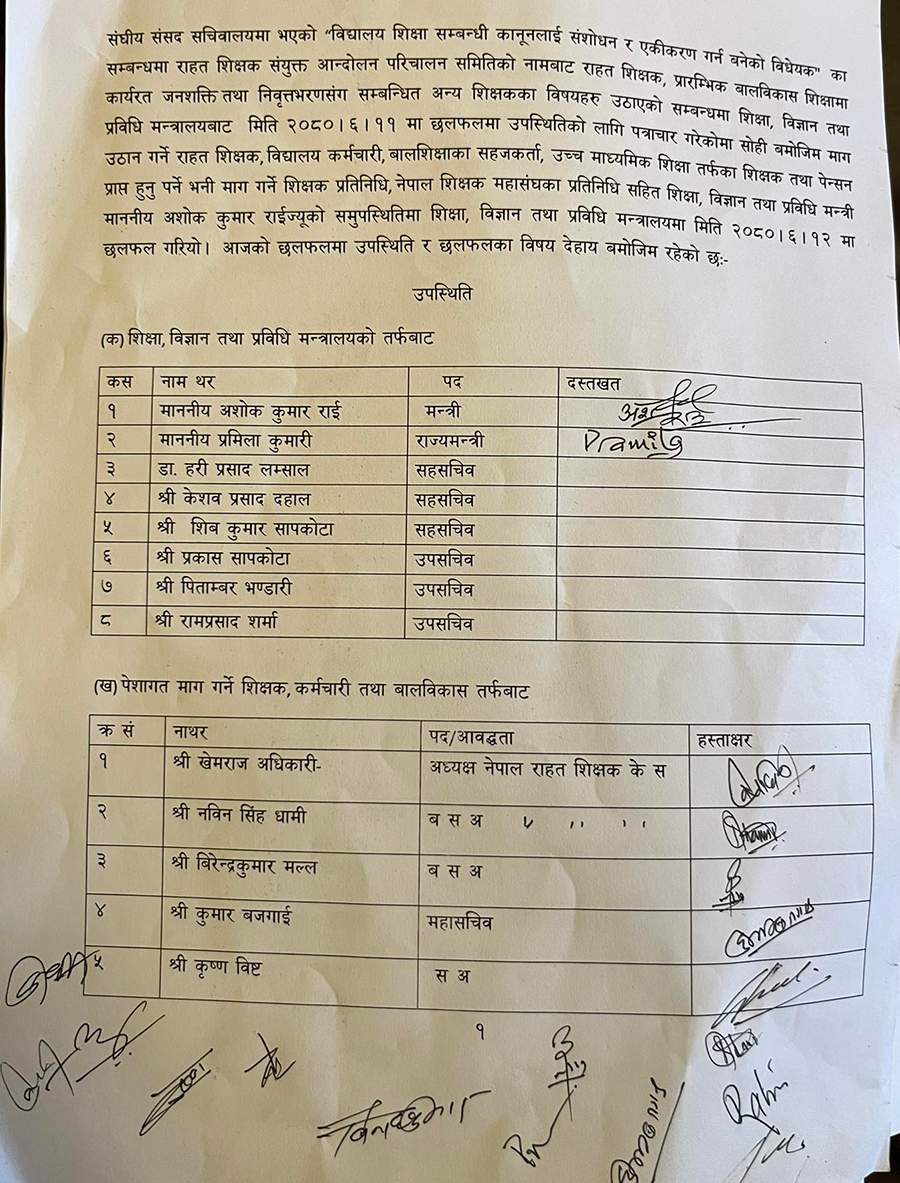 संघीय संसद सचिवालयमा भएको "विद्यालय शिक्षा सम्बन्धी कानूनलाई संशोधन र एकीकरण गर्न बनेको विधेयक" का
सम्बन्धमा राहत शिक्षक संयुक्त आन्दोलन परिचालन समितिको नामबाट राहत शिक्षक, प्रारम्भिक बालविकास शिक्षामा
कार्यरत जनशक्ति तथा निवृत्तभरणसंग सम्बन्धित अन्य शिक्षकका विषयहरु उठाएको सम्बन्धमा शिक्षा, विज्ञान तथा
प्रविधि मन्त्रालयबाट मिति २०८०।६।११ मा छलफलमा उपस्थितिको लागि पत्राचार गरेकोमा सोही बमोजिम माग
उठान गर्ने राहत शिक्षक, विद्यालय कर्मचारी, बालशिक्षाका सहजकर्ता, उच्च माध्यमिक शिक्षा तर्फका शिक्षक तथा पेन्सन
प्राप्त हुनु पर्ने भनी माग गर्ने शिक्षक प्रतिनिधि, नेपाल शिक्षक महासंघका प्रतिनिधि सहित शिक्षा, विज्ञान तथा प्रविधि मन्त्री
माननीय अशोक कुमार राईज्यूको समुपस्थितिमा शिक्षा, विज्ञान तथा प्रविधि मन्त्रालयमा मिति २०८०।६।१२ मा
छलफल गरियो। आजको छलफलमा उपस्थिति र छलफलका विषय देहाय बमोजिम रहेको छः-
उपस्थिति
(क) शिक्षा, विज्ञान तथा प्रविधि मन्त्रालयको तर्फबाट
कस नाम थर पद दस्तखत
१ माननीय अशोक कुमार राई मन्त्री
२ माननीय प्रमिला कुमारी राज्यमन्त्री Pramila
३ डा. हरी प्रसाद लम्साल सहसचिव
४ श्री केशव प्रसाद दहाल सहसचिव
५ श्री शिब कुमार सापकोटा सहसचिव
६ श्री प्रकास सापकोटा उपसचिव
७ श्री पिताम्बर भण्डारी उपसचिव
८ श्री रामप्रसाद शर्मा उपसचिव
(ख) पेशागत माग गर्ने शिक्षक, कर्मचारी तथा बालविकास तर्फबाट
क्र सं नाथर पद/आवद्धता हस्ताक्षर
१ श्री खेमराज अधिकारी- अध्यक्ष नेपाल राहत शिक्षक के स
२ श्री नविन सिंह धामी ब स अ " " "
३ श्री बिरेन्द्रकुमार मल्ल ब स अ
४ श्री कुमार बजगाई महासचिव
५ श्री कृष्ण विष्ट स अ
१